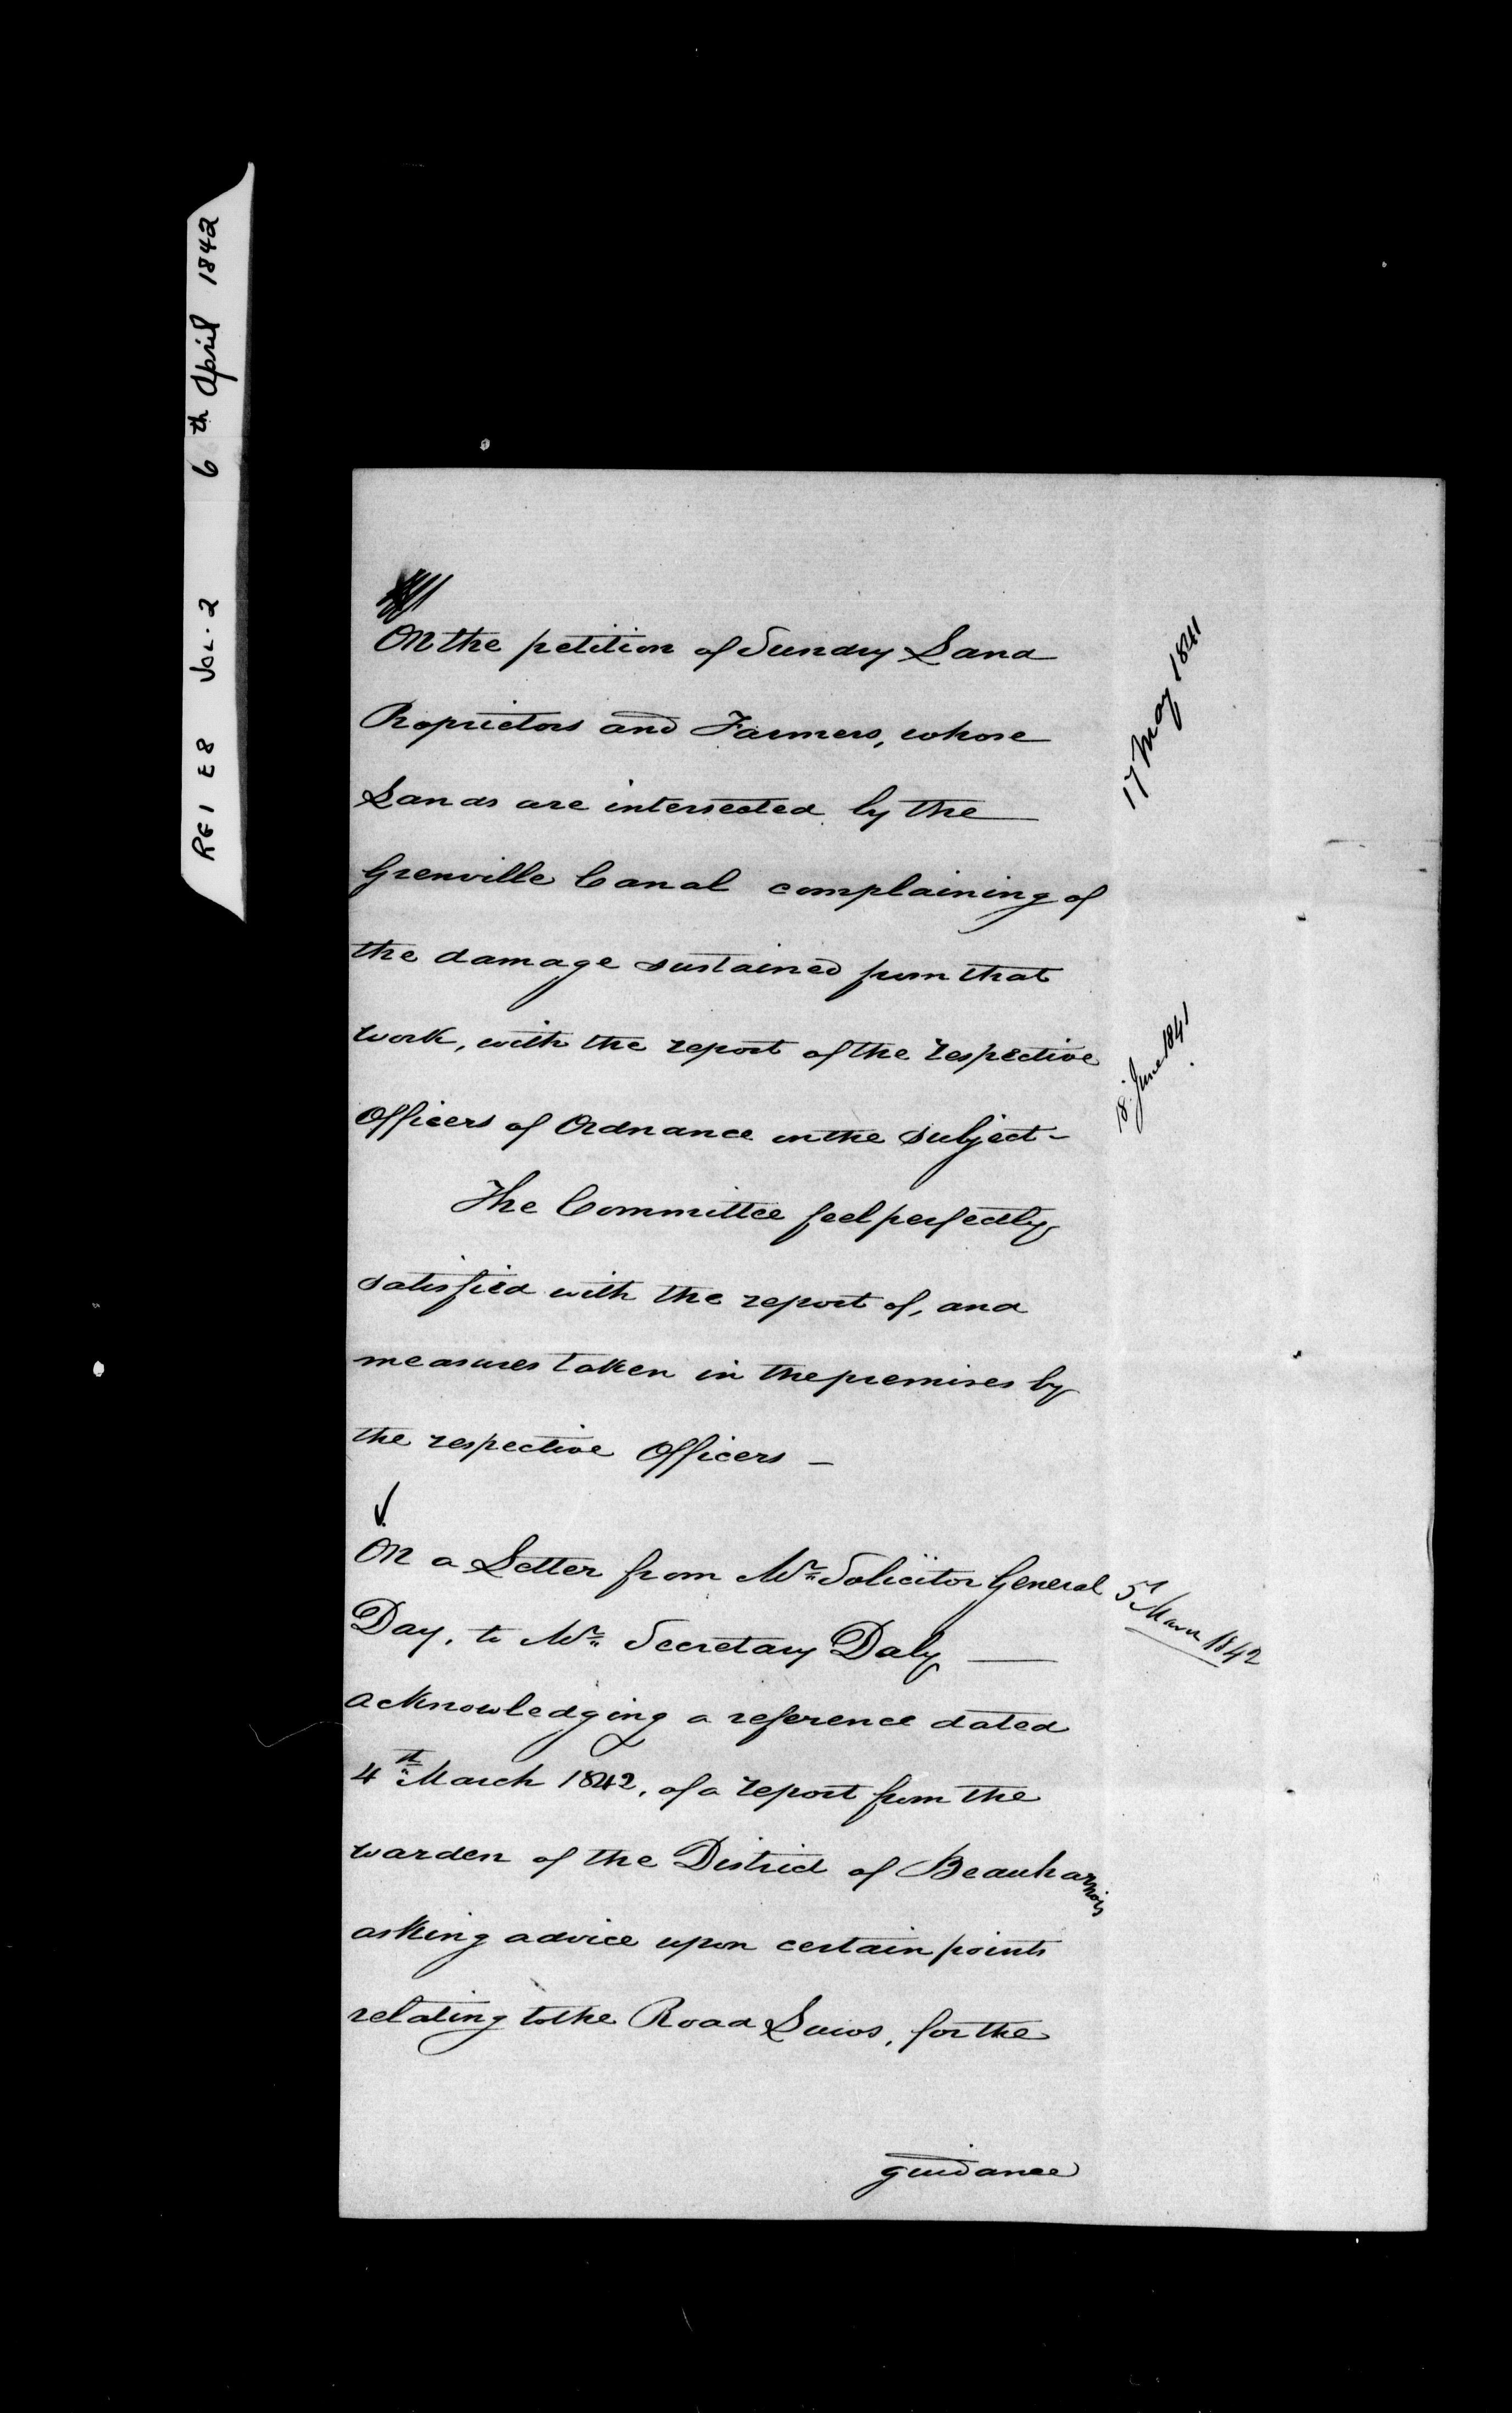 RG1 E8 VOL. 2 6th April 1842
On the petition of Sundry Land
Proprietors and Farmers, whose
Lands are intersected by the
Grenville Canal complaining of
the damage sustained from that
work, with the report of the respective
Officers of Ordnance on the subject -
17 May 1841
18 June 1841
The Committee feel perfectly
satisfied with the report of, and
measures taken in the premises by
the respective Officers -
On a Letter from Mr. Solicitor General
5 March 1842
Day, to Mr. Secretary Daly
acknowledging a reference dated
4th March 1842, of a report from the
warden of the District of Beauharnois
asking advice upon certain points
relating to the Road Laws, for the
guidance